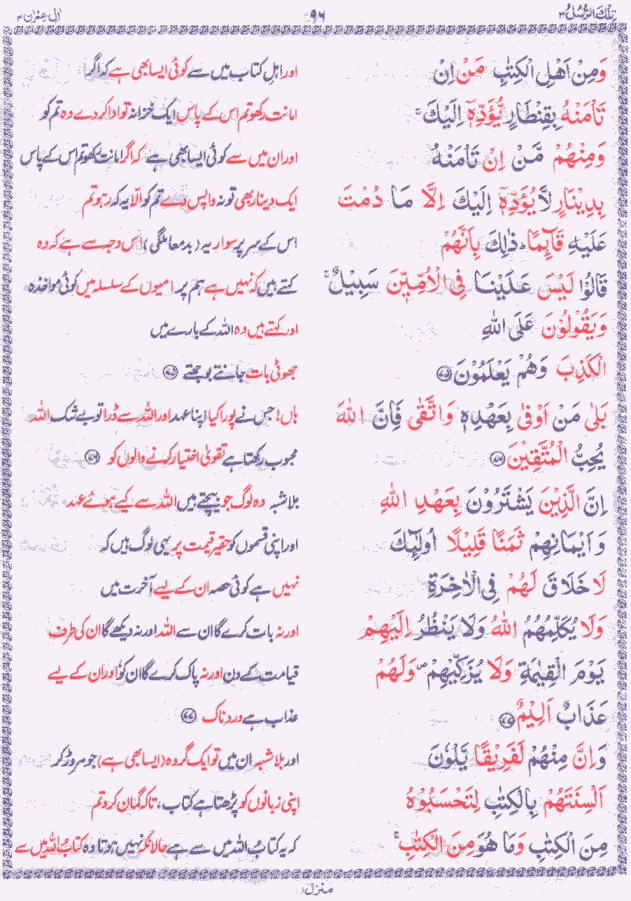 تِلْكَ الرُّسُلُ ۳
۹۶
اٰلِ عِمْرٰن ۳
وَمِنْ اَهْلِ الْكِتٰبِ مَنْ اِنْ
اور اہلِ کتاب میں سے کوئی ایسا بھی ہے کہ اگر
تَاْمَنْهُ بِقِنْطَارٍ يُّؤَدِّهٖٓ اِلَيْكَ ۚ
امانت رکھو تم اس کے پاس ایک خزانہ تو ادا کردے وہ تم کو
وَمِنْهُمْ مَّنْ اِنْ تَاْمَنْهُ
اور ان میں سے کوئی ایسا بھی ہے کہ اگر امانت رکھو تم اس کے پاس
بِدِيْنَارٍ لَّا يُؤَدِّهٖٓ اِلَيْكَ اِلَّا مَا دُمْتَ
ایک دینار بھی تو نہ واپس دے تم کو اِلّا یہ کہ رہو تم
عَلَيْهِ قَآئِمًا ؕ ذٰلِكَ بِاَنَّهُمْ
اس کے سر پر سوار یہ (بدمعاملگی) اس وجہ سے ہے کہ وہ
قَالُوْا لَيْسَ عَلَيْنَا فِى الْاُمِّيّٖنَ سَبِيْلٌ ۚ
کہتے ہیں کہ نہیں ہے ہم پر امیوں کے سلسلہ میں کوئی مواخذہ
وَيَقُوْلُوْنَ عَلَى اللّٰهِ
اور کہتے ہیں وہ اللہ کے بارے میں
الْكَذِبَ وَهُمْ يَعْلَمُوْنَ ﴿۷۵﴾
جھوٹی بات جانتے بوجھتے ﴿۷۵﴾
بَلٰى مَنْ اَوْفٰى بِعَهْدِهٖ وَاتَّقٰى فَاِنَّ اللّٰهَ
ہاں! جس نے پورا کیا اپنا عہد اور اللہ سے ڈرا تو بے شک اللہ
يُحِبُّ الْمُتَّقِيْنَ ﴿۷۶﴾
محبوب رکھتا ہے تقویٰ اختیار کرنے والوں کو ﴿۷۶﴾
اِنَّ الَّذِيْنَ يَشْتَرُوْنَ بِعَهْدِ اللّٰهِ
بلاشبہ وہ لوگ جو بیچتے ہیں اللہ سے کیے ہوئے عہد
وَاَيْمَانِهِمْ ثَمَنًا قَلِيْلًا اُولٰٓئِكَ
اور اپنی قسموں کو حقیر قیمت پر یہی لوگ ہیں کہ
لَا خَلَاقَ لَهُمْ فِى الْاٰخِرَةِ
نہیں ہے کوئی حصہ ان کے لیے آخرت میں
وَلَا يُكَلِّمُهُمُ اللّٰهُ وَلَا يَنْظُرُ اِلَيْهِمْ
اور نہ بات کرے گا ان سے اللہ اور نہ دیکھے گا ان کی طرف
يَوْمَ الْقِيٰمَةِ وَلَا يُزَكِّيْهِمْ ۪ وَلَهُمْ
قیامت کے دن اور نہ پاک کرے گا ان کو اور ان کے لیے
عَذَابٌ اَلِيْمٌ ﴿۷۷﴾
عذاب ہے دردناک ﴿۷۷﴾
وَاِنَّ مِنْهُمْ لَفَرِيْقًا يَّلْوٗنَ
اور بلاشبہ ان میں تو ایک گروہ (ایسا بھی ہے) جو مروڑ کر
اَلْسِنَتَهُمْ بِالْكِتٰبِ لِتَحْسَبُوْهُ
اپنی زبانوں کو پڑھتا ہے کتاب، تاکہ گمان کرو تم
مِنَ الْكِتٰبِ وَمَا هُوَ مِنَ الْكِتٰبِ ۚ
کہ یہ کتابُ اللہ میں سے ہے حالانکہ نہیں ہوتا وہ کتابُ اللہ میں سے
منزل ۱